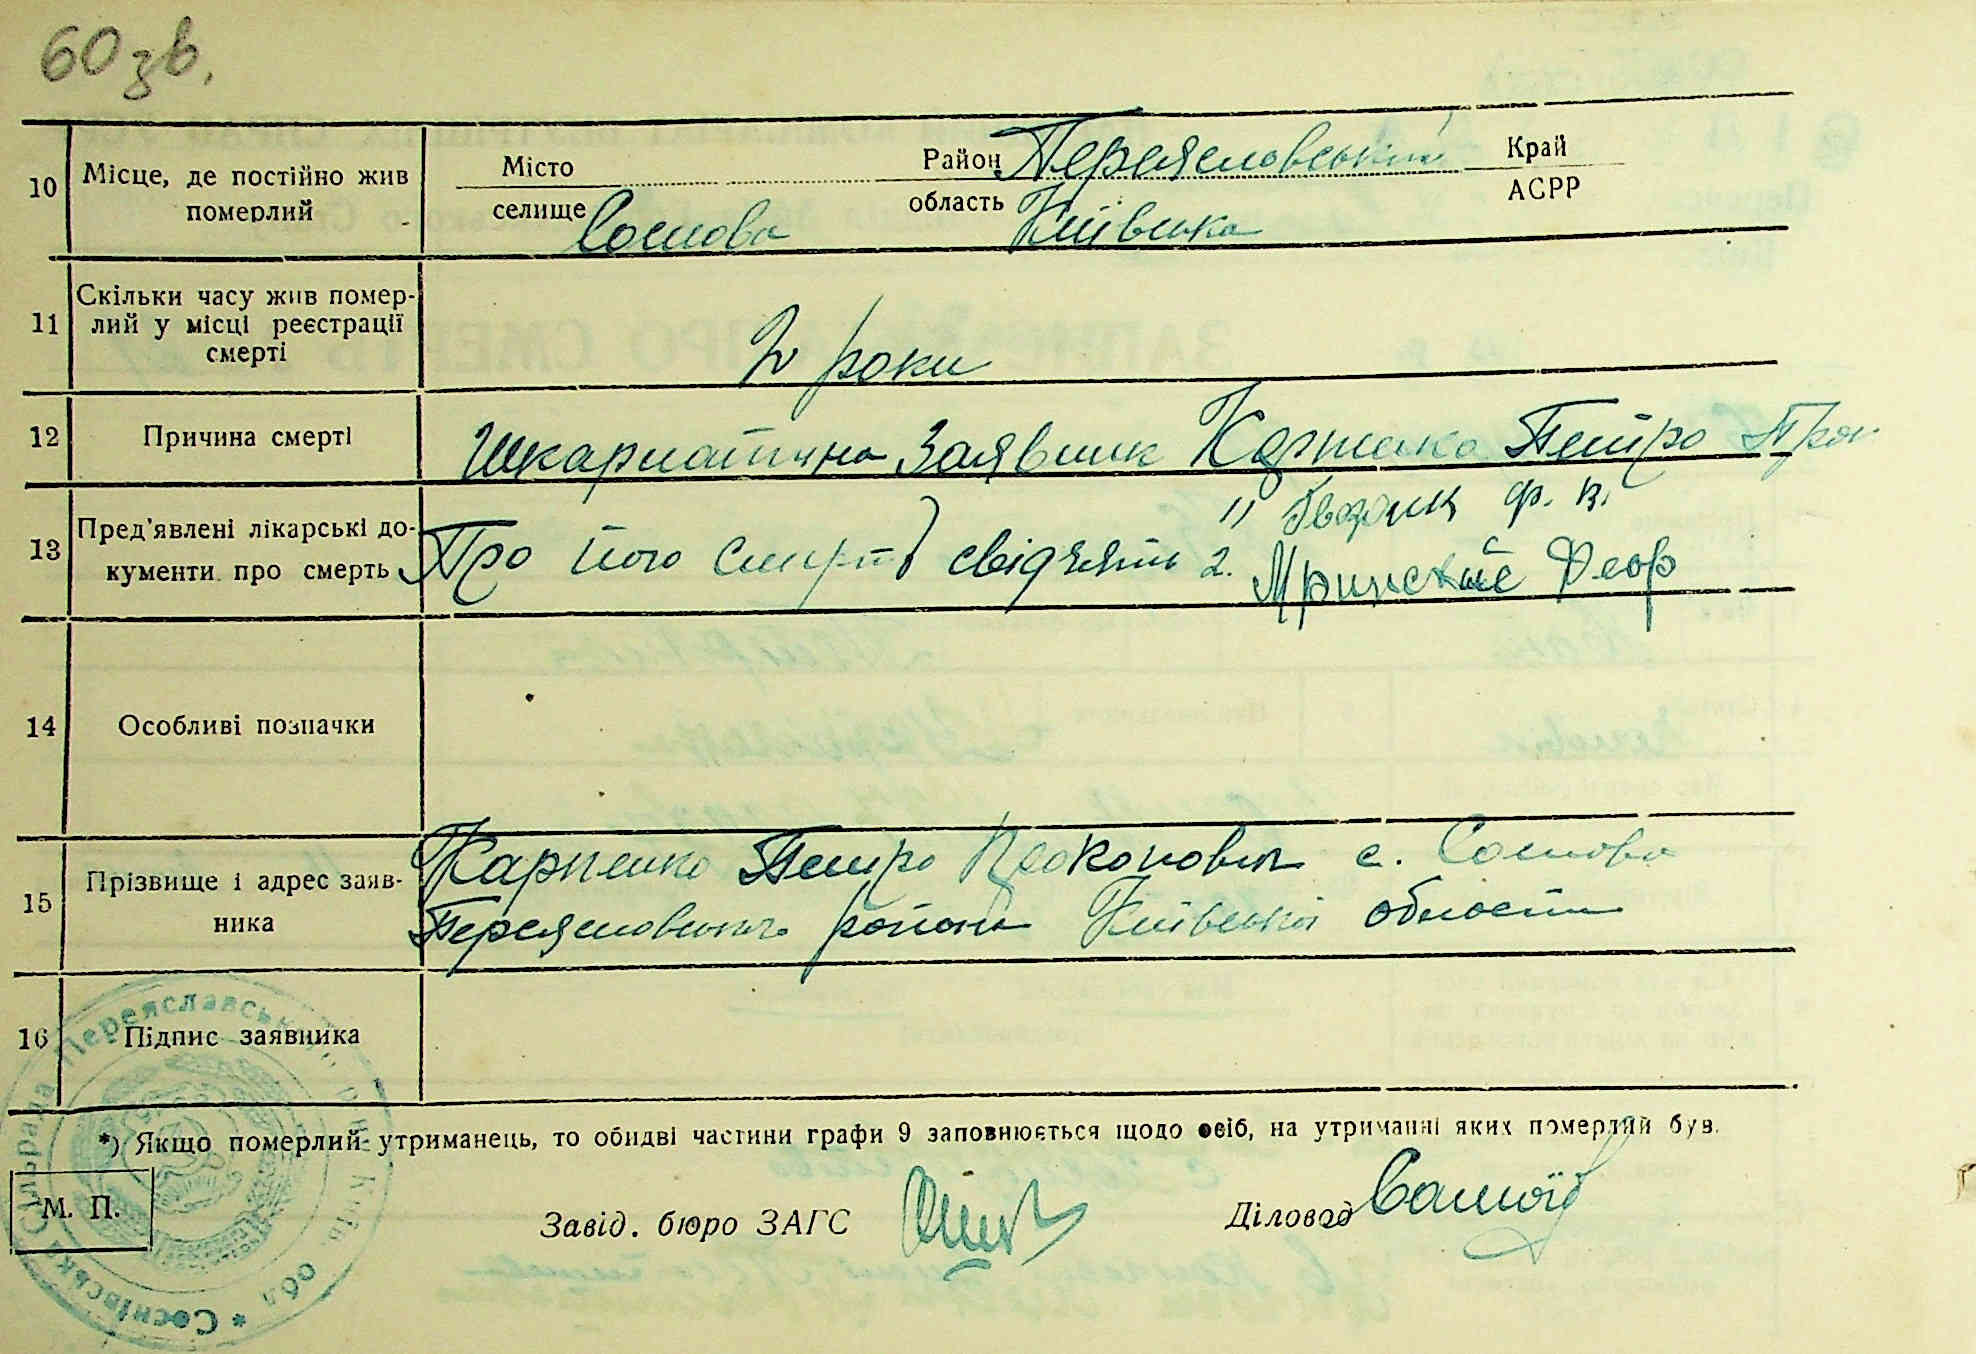 60 зв.
10 Місце, де постійно жив померлий
Місто
селище Соснова
Район Переясловський
область Київська
Край
АСРР
11 Скільки часу жив помер-
лий у місці реєстрації
смерті
2 роки
12 Причина смерті
Шкарлатина Заявник Карпенко Петро Прок
13 Пред'явлені лікарські до-
кументи про смерть
Про його смерть свідчять 1) Гвоздик Ф. К.
2. Федор
14 Особливі позначки
15 Прізвище і адрес заяв-
ника
Карпенко Петро Прокопович с. Соснова
Переясловського району Київської області
16 Підпис заявника
*) Якщо померлий утриманець, то обидві частини графи 9 заповнюється щодо осіб, на утриманні яких померлий був.
М. П.
Завід. бюро ЗАГС
Діловод Самоїд
Соснівська Сільрада Переяславськ. р-ну Київ. обл. *